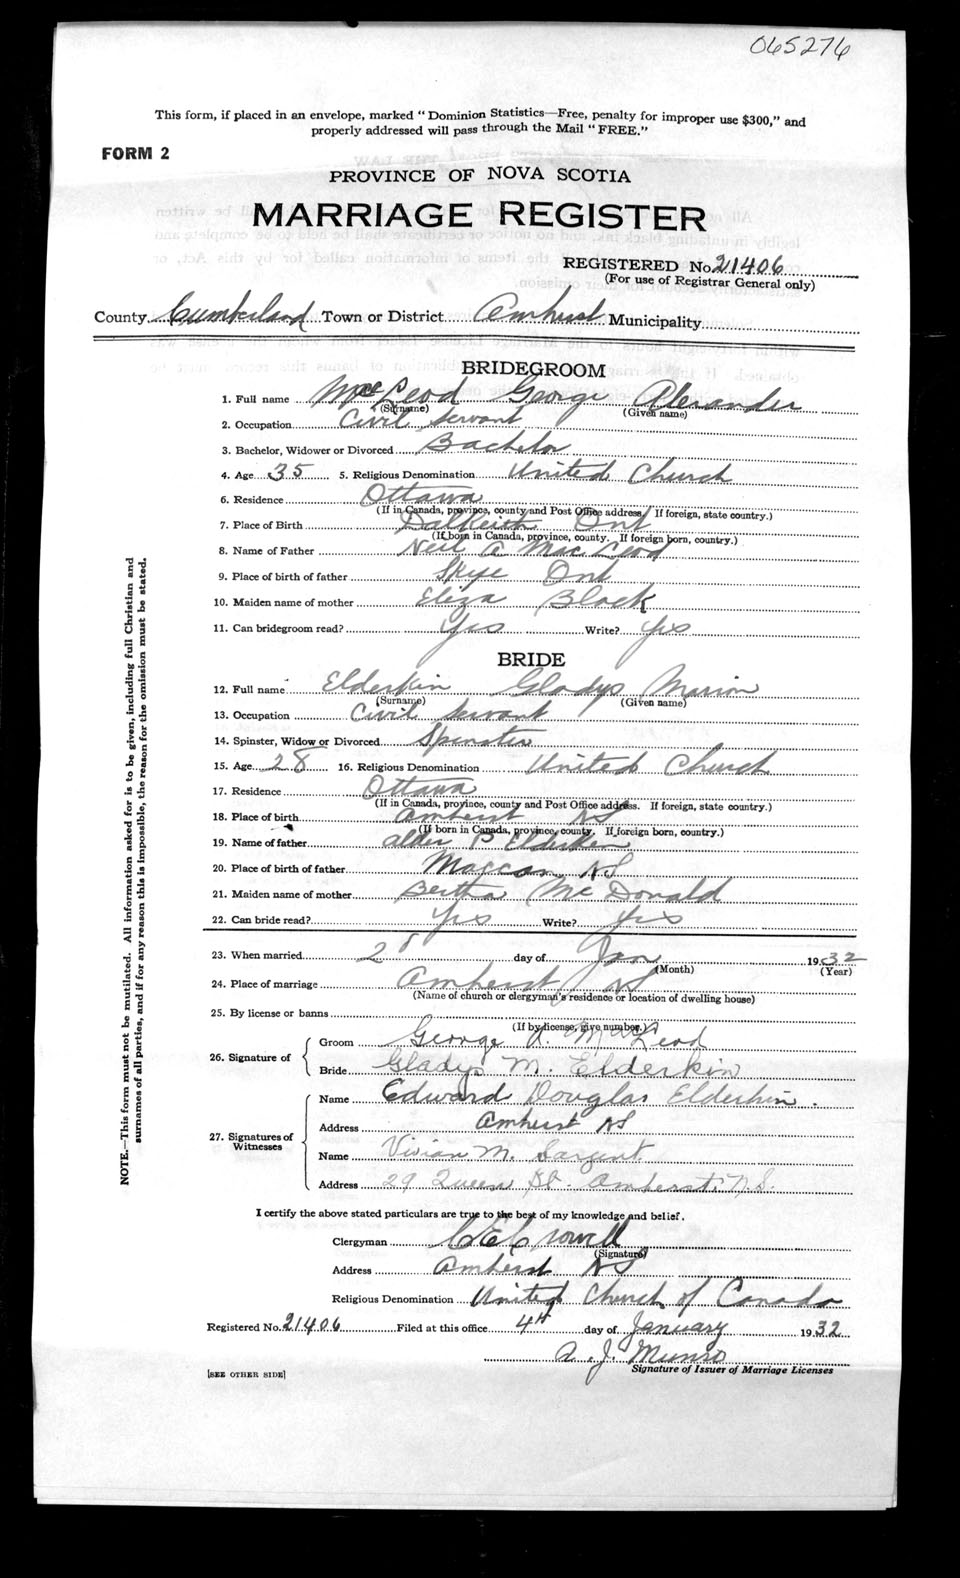 065276
This form, if placed in an envelope, marked "Dominion Statistics—Free, penalty for improper use $300," and
properly addressed will pass through the Mail "FREE."
FORM 2
PROVINCE OF NOVA SCOTIA
MARRIAGE REGISTER
REGISTERED No. 21406
(For use of Registrar General only)
County Cumberland Town or District Amherst Municipality
BRIDEGROOM
1. Full name MacLeod George Alexander
(Surname) (Given name)
2. Occupation Civil Servant
3. Bachelor, Widower or Divorced Bachelor
4. Age 35 5. Religious Denomination United Church
6. Residence Ottawa
(If in Canada, province, county and Post Office address. If foreign, state country.)
7. Place of Birth Dalkeith Ont
(If born in Canada, province, county. If foreign born, country.)
8. Name of Father Neil A MacLeod
9. Place of birth of father Skye Ont
10. Maiden name of mother Eliza Black
11. Can bridegroom read? Yes Write? Yes
BRIDE
12. Full name Elderkin Gladys Marion
(Surname) (Given name)
13. Occupation Civil Servant
14. Spinster, Widow or Divorced Spinster
15. Age 28 16. Religious Denomination United Church
17. Residence Ottawa
(If in Canada, province, county and Post Office address. If foreign, state country.)
18. Place of birth Amherst NS
(If born in Canada, province, county. If foreign born, country.)
19. Name of father B Elderkin
20. Place of birth of father Maccan NS
21. Maiden name of mother Bertha McDonald
22. Can bride read? Yes Write? Yes
23. When married day of Jan 1932
(Month) (Year)
24. Place of marriage Amherst NS
(Name of church or clergyman's residence or location of dwelling house)
25. By license or banns
(If by license, give number.)
26. Signature of Groom George A. MacLeod
Bride Gladys M. Elderkin
27. Signatures of Witnesses Name Edward Douglas Elderkin.
Address Amherst NS
Name Vivian M. Sargent
Address 29 Queen St. Amherst. N.S.
I certify the above stated particulars are true to the best of my knowledge and belief.
Clergyman C E Crowell
(Signature)
Address Amherst NS
Religious Denomination United Church of Canada
Registered No. 21406 Filed at this office 4th day of January 1932
A. J. Munro
Signature of Issuer of Marriage Licenses
[SEE OTHER SIDE]
NOTE.—This form must not be mutilated. All information asked for is to be given, including full Christian and
surnames of all parties, and if for any reason this is impossible, the reason for the omission must be stated.